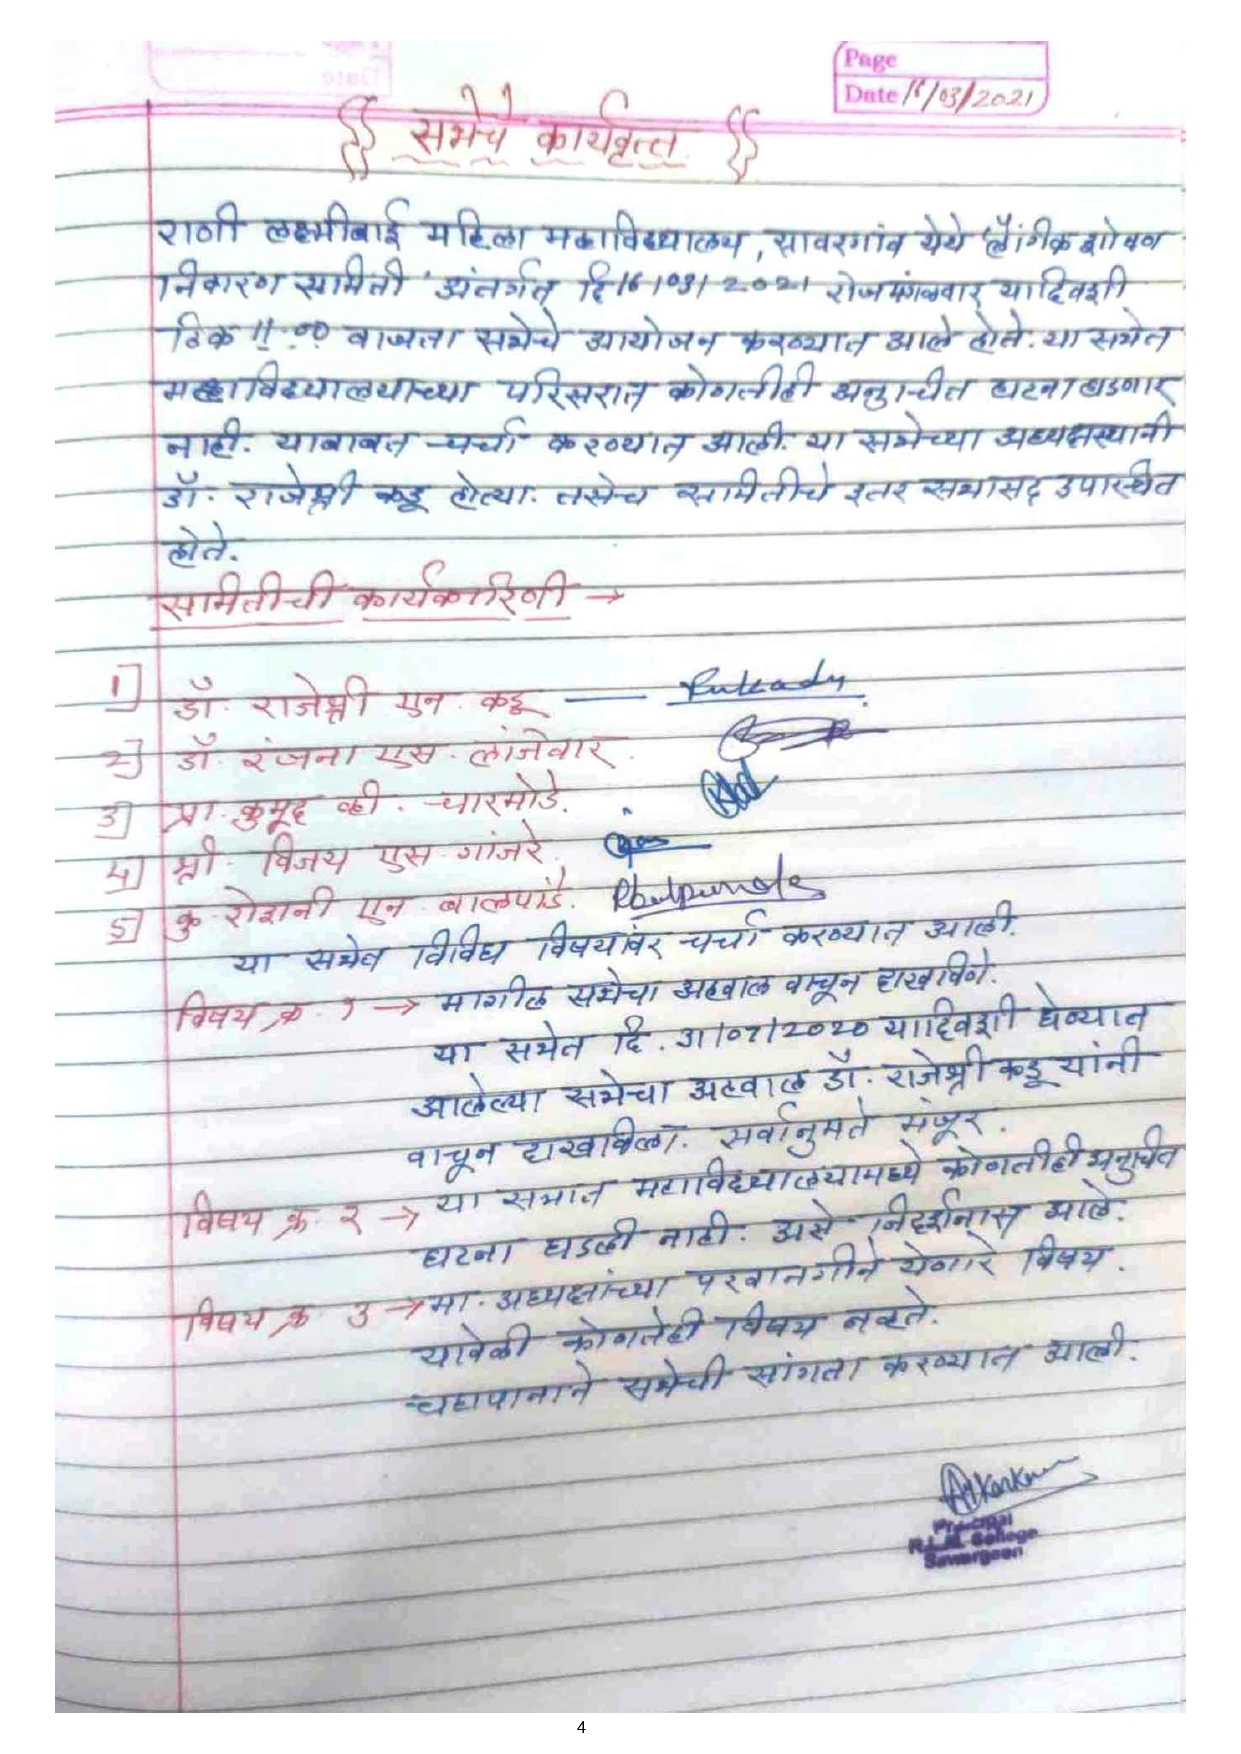 Page
Date 16/03/2021
सभेचे कार्यवृत्त
राणी लक्ष्मीबाई महिला महाविद्यालय, सावरगांव येथे 'लैंगीक शोषण
निवारण समिती' अंतर्गत दि 16/03/2021 रोज मंगळवार यादिवशी
ठिक 11:00 वाजता सभेचे आयोजन करण्यात आले होते. या सभेत
महाविद्यालयाच्या परिसरात कोणतीही अनुचित घटना घडणार
नाही. याबाबत चर्चा करण्यात आली. या सभेच्या अध्यक्षस्थानी
डॉ. राजेश्री कडू होत्या. तसेच समितीचे इतर सभासद उपस्थित
होते.
समितीची कार्यकारिणी →
1] डॉ. राजेश्री एन. कडू —
2] डॉ. रंजना एस. लांजेवार.
3] प्रा. कुमूद व्ही. चारमोडे.
4] श्री. विजय एस. गांजरे.
5] कु. रोशनी एन. बालपांडे. Rbalpande
या सभेत विविध विषयांवर चर्चा करण्यात आली.
विषय क्र. 1 → मागील सभेचा अहवाल वाचून दाखविणे.
या सभेत दि. 31/07/2020 यादिवशी घेण्यात
आलेल्या सभेचा अहवाल डॉ. राजेश्री कडू यांनी
वाचून दाखविला. सर्वानुमते मंजूर.
विषय क्र. 2 → या सभात महाविद्यालयामध्ये कोणतीही अनुचित
घटना घडली नाही. असे निदर्शनास आले.
विषय क्र. 3 → मा. अध्यक्षांच्या परवानगीने येणारे विषय.
यावेळी कोणतेही विषय नव्हते.
चहापानाने सभेची सांगता करण्यात आली.
Principal
R.L.M. College
Sawargaon
4